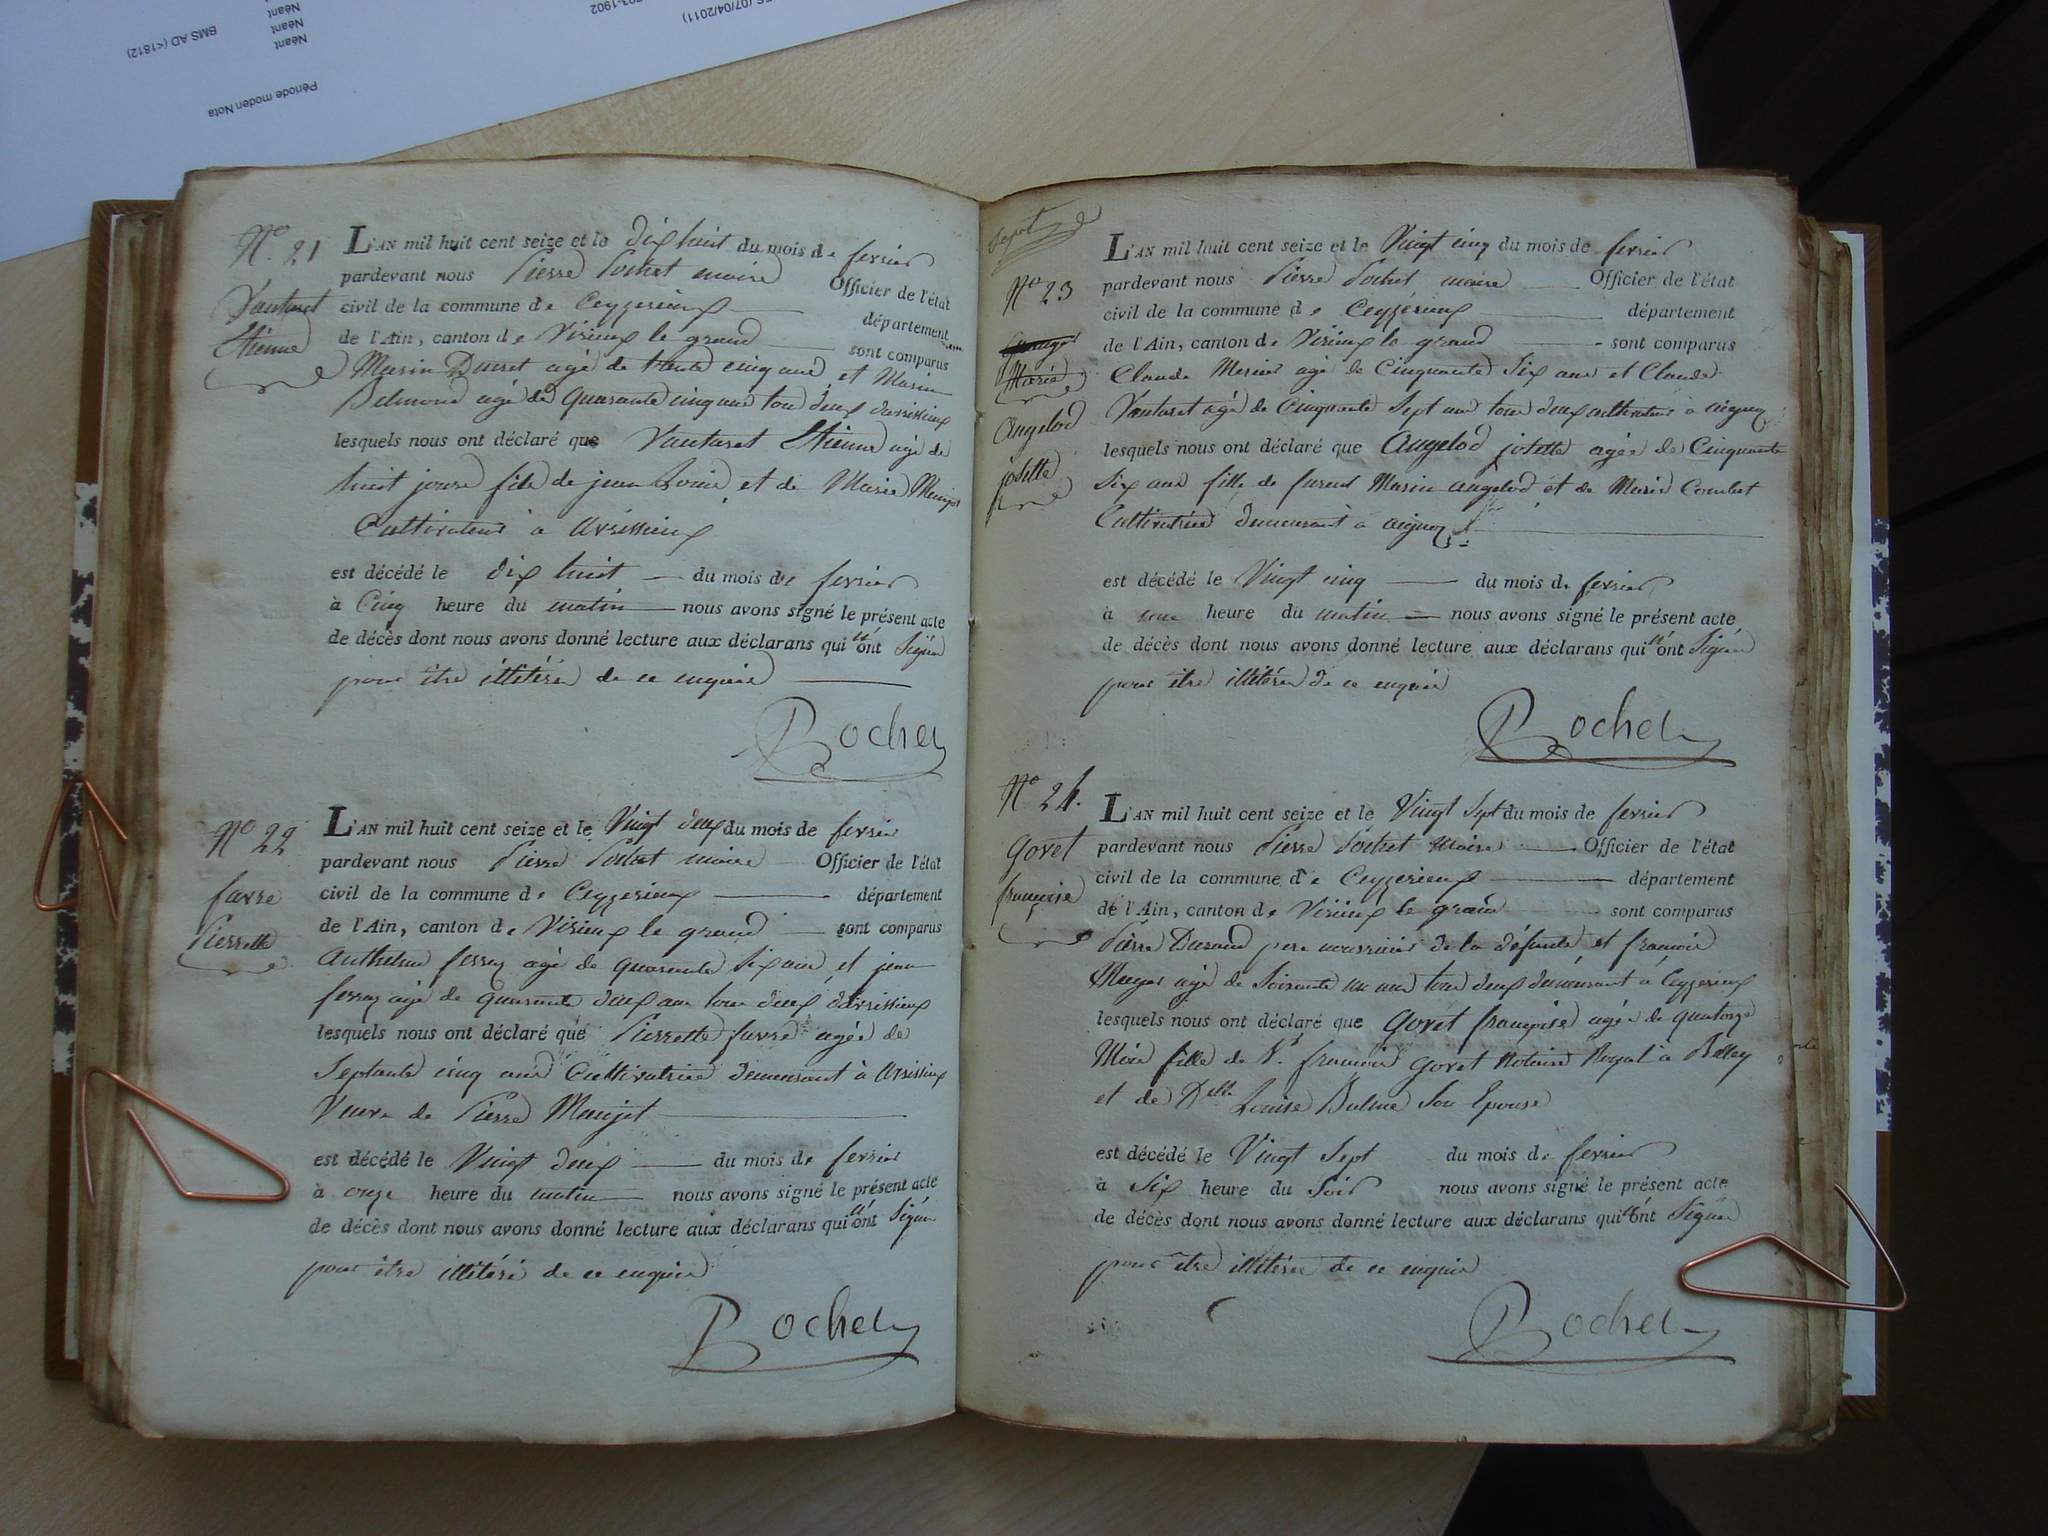 ES (07/04/2011)
793-1902
BMS AD (<1812)
Néant
Néant
Néant
Période moden Nota
N° 21
Vautaret
Etienne
L'AN mil huit cent seize et le dix huit du mois de fevrier
pardevant nous Pierre Pochet maire Officier de l'état
civil de la commune de Ceyzerieux département
de l'Ain, canton de Virieux le grand sont comparus
Marin Ducret agé de trente cinq ans et Marin
Belmond agé de quarante cinq ans tou deux davrissieux
lesquels nous ont déclaré que Vautaret Etienne agé de
huit jours fils de jean Louis et de Marie
Cultivateur à avrissieux
est décédé le dix huit du mois de fevrier
à Cinq heure du matin nous avons signé le présent acte
de décès dont nous avons donné lecture aux déclarans qui n'ont Signé
pour être illitéré de ce enquis
Rochet
N° 22
favre
Pierrette
L'AN mil huit cent seize et le Vingt deux du mois de fevrier
pardevant nous Pierre Pochet maire Officier de l'état
civil de la commune de Ceyzerieux département
de l'Ain, canton de Virieux le grand sont comparus
Anthelme ferraz agé de quarante Six ans et jean
ferraz agé de quarante deux ans tou deux davrissieux
lesquels nous ont déclaré que Pierrette favre agée de
Septante cinq ans Cultivatrice demeurant à avrissieux
Veuve de Pierre Maujot
est décédé le Vingt deux du mois de fevrier
à onze heure du matin nous avons signé le présent acte
de décès dont nous avons donné lecture aux déclarans qui n'ont Signé
pour être illitéré de ce enquis
Rochet
Sept
N° 23
Marie
Angelod
josette
L'AN mil huit cent seize et le Vingt cinq du mois de fevrier
pardevant nous Pierre Pochet maire Officier de l'état
civil de la commune de Ceyzérieux département
de l'Ain, canton de Virieux le grand sont comparus
Claude Mernier agé de Cinquante Six ans et Claude
Vautaret agé de Cinquante Sept ans tou deux cultivateur à aignoz
lesquels nous ont déclaré que Angelod josette agée de Cinquante
Six ans fille de fureut Marin angelod et de Marie Combet
Cultivatrice demeurant à aignoz
est décédé le Vingt cinq du mois de fevrier
à une heure du matin nous avons signé le présent acte
de décès dont nous avons donné lecture aux déclarans qui n'ont Signé
pour être illitéré de ce enquis
Rochet
N° 24.
Goret
françoise
L'AN mil huit cent seize et le Vingt Sept du mois de fevrier
pardevant nous Pierre Pochet maire Officier de l'état
civil de la commune de Ceyzerieux département
de l'Ain, canton de Virieux le grand sont comparus
Pierre Durand pere nourricier de la défunte et francois
agé de Soixante un ans tou deux demeurant à Ceyzerieux
lesquels nous ont déclaré que Goret françoise agée de quatorze
Mois fille de Sr. francois Goret Notaire Royal à Belley
et de Delle Louise Son Epouse
est décédé le Vingt Sept du mois de fevrier
à Six heure du Soir nous avons signé le présent acte
de décès dont nous avons donné lecture aux déclarans qui n'ont Signé
pour être illitéré de ce enquis
Rochet